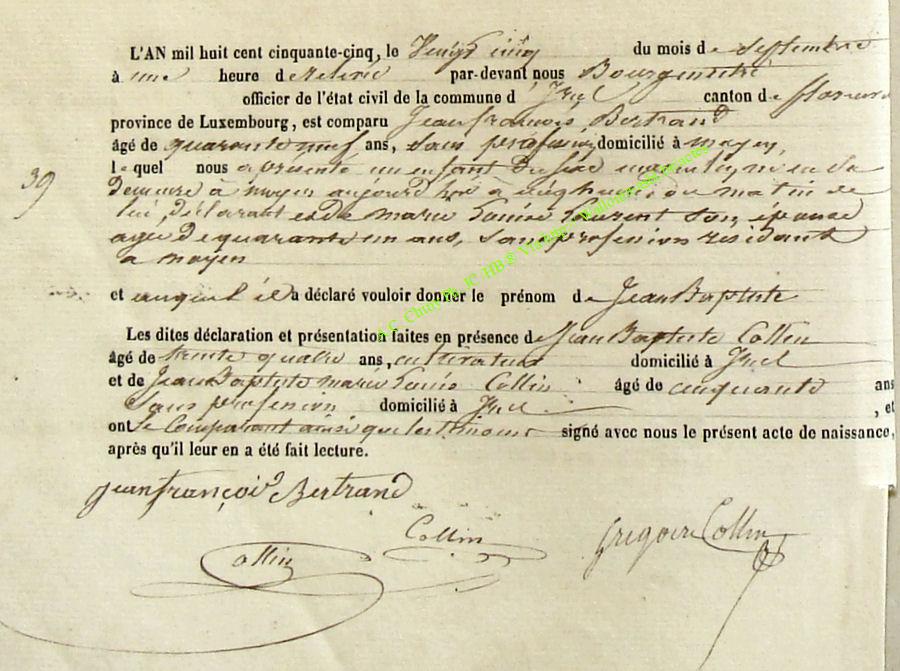 L'AN mil huit cent cinquante-cinq, le Vingt cinq du mois de septembre
à une heure de relevé par-devant nous Bourgmestre
officier de l'état civil de la commune d'Izel canton de florenv
province de Luxembourg, est comparu Jean françois Bertrand
âgé de quarante neuf ans, sans profession, domicilié à moyen,
lequel nous a présenté un enfant du sexe masculin, né en sa
demeure à moyen aujourd'hui à cinq heures du matin de
lui, déclarant et de marie Louise Laurent son épouse
agée de quarante un ans, sans profession résidant
a moyen
39
et auquel il a déclaré vouloir donner le prénom de Jean Baptiste
Les dites déclaration et présentation faites en présence de Jean Baptiste Collin
âgé de trente quatre ans, cultivateur domicilié à Izel
et de Jean Baptiste marie Louis Collin âgé de cinquante ans
sans profession domicilié à Izel , et
ont le Comparant ainsi que les témoins signé avec nous le présent acte de naissance,
après qu'il leur en a été fait lecture.
jean françois Bertrand
Collin
Collin
grégoire Collin